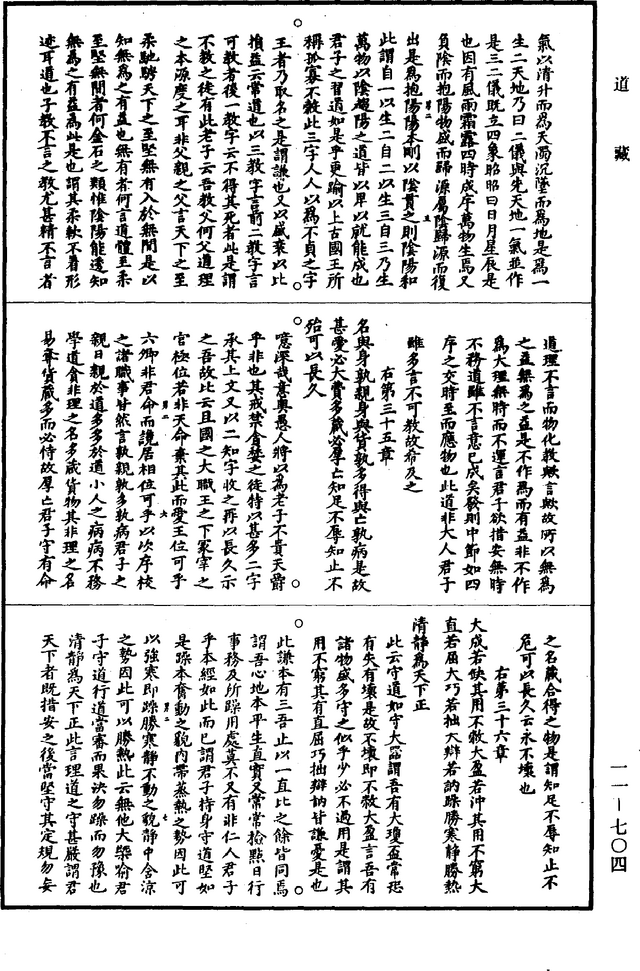 道藏
氣以清升而為天濁沉墜而為地是為一
生二天地乃曰二儀與先天地一氣並作
是三二儀既立四象昭昭曰日月星辰是
也因有風雨霜露四時成序萬物生焉又
負陰而抱陽物盛而歸源屬陰歸源而復
出是為抱陽陽本剛以陰貫之則陰陽和
此謂自一以生二自二以生三自三乃生
萬物以陰趨陽之道甘以卑以就能成也
君子之習道如是乎更踰以上古國王所
稱孤寡不穀此三字人人以為不貞之字
王者乃取名之是謂謙也又以盛衰以比
損益云常道也以三教字言前二教字言
可教者後一教字云不得其死者此是謂
不教之徒有此老子云吾教父何父道理
之本源度之耳非父親之父言天下之至
柔馳騁天下之至堅無有入於無間是以
知無為之有益也無有者何言道體至柔
至堅無間者何金石之類惟陰陽能透知
無為之有益為此是也謂其柔軟不着形
迹耳道也子教不言之教尤甚精不言者
道理不言而物化教歟言歟故所以無為
之益無為之益是不作為而有益非不作
為大理無時而不運言君子欲措安無時
不務道雖不言意已成矣發則中節如四
序之交時至而應物也此道非大人君子
雖多言不可教故希及之
右第三十五章
名與身孰親身與貨孰多得與亡孰病是故
甚愛必大費多藏必厚亡知足不辱知止不
殆可以長久
噫深哉意奧愚人將以為老子不貴天爵
乎非也其戒禁貪婪之徒特以甚多二字
承其上文又以二知字收之再以長久示
之吾故比云且國之大職王之下冢宰之
官極位若非天命棄其此而愛王位可乎
六卿非君命而譏居相位可乎以次序校
之諸職事甘然言孰親孰多孰病君子之
親日親於道多多於道小人之病病不務
學道貪非理之名多藏貨物其非理之名
易奔貨藏多而必恃故厚亡君子守有命
之名藏合得之物是謂知足不辱知止不
危可以長久云永不壞也
右第三十六章
大成若缺其用不敝大盈若沖其用不窮大
直若屈大巧若拙大辯若訥躁勝寒靜勝熱
清靜為天下正
此云守道如守大器謂吾有大瓊盃常恐
有失有壞是故不壞即不敝大盈言吾有
諸物盛多守之似乎少必不過用是謂其
用不窮其有直屈巧拙辯訥皆謙憂是也
此謙本有三吾止以一直比之餘皆同焉
謂吾心地本平生直實又常常撿點日行
事務及所躁用處莫不又有非仁人君子
乎本經如此而已謂君子持身守道堅如
是躁本奮動之貌內帶蒸熱之勢因此可
以強寒即躁勝寒靜不動之貌靜中含涼
之勢因此可以勝熱此云無他大槩喻君
子守道行道當審而果決勿躁而勿豫也
清靜為天下正此言理道之守甚嚴謂君
天下者既措安之後當堅守其定規勿妄
一一—七〇四